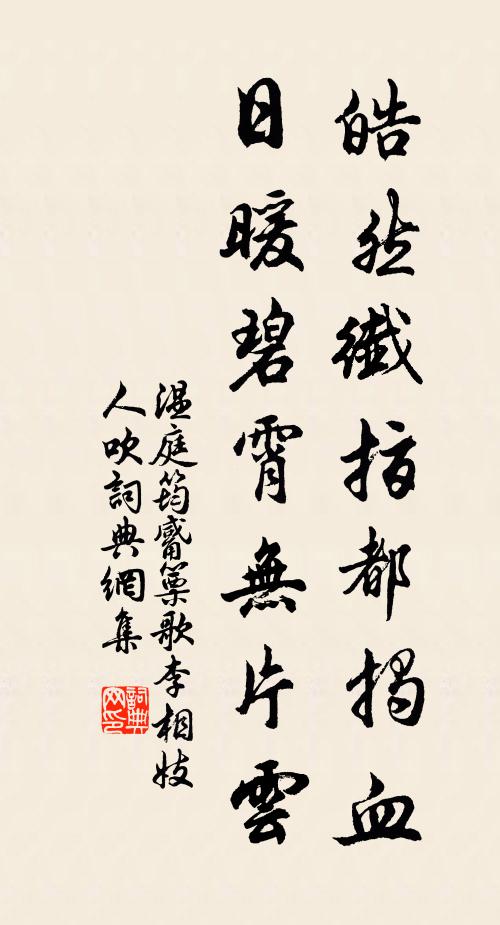 皓然纖指都揭血
日暖碧霄無片雲
溫庭筠觱篥歌李相妓
人吹詞典網集
詞典
网印